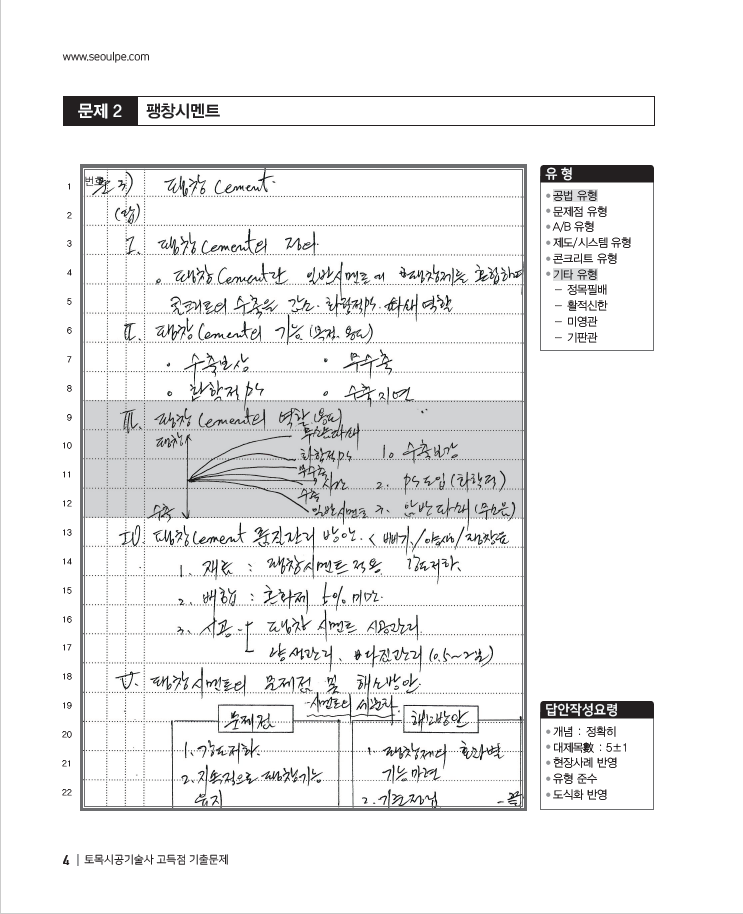 www.seoulpe.com
문제 2 팽창시멘트
1 번호 문 2) 팽창 Cement.
2 (답)
3 I. 팽창 Cement의 정의
4 팽창 Cement란 일반시멘트에 팽창제를 혼합하여
5 콘크리트의 수축을 감소. 화학적 PS. 파쇄역할
6 II. 팽창 Cement의 기능 (목적. 용도)
7 • 수축보상 • 무수축
8 • 화학적 PS • 수축지연
9 III. 팽창 Cement의 역할 (용도)
팽창
무소음파쇄
화학적 PS
10 1. 수축보강
무수축
시간
11 2. PS도입 (화학적)
수축
12 수축 일반시멘트 3. 암반파쇄 (무소음)
13 IV. 팽창 Cement 품질관리 방안.
14 1. 재료 : 팽창시멘트 적용 강도저하.
15 2. 배합 : 혼화제 5% 미만.
16 3. 시공 팽창 시멘트 사용관리.
17 양생관리, 다짐관리 (0.5~2
18 V. 팽창시멘트의 문제점 및 해소방안.
19 시멘트의
문제점 해소방안
20
1. 강도저하. 1. 팽창제의 효과별
21
2. 지속적으로 팽창기능 기능마련
22 유지 2. -끝-
유 형
• 공법 유형
• 문제점 유형
• A/B 유형
• 제도/시스템 유형
• 콘크리트 유형
• 기타 유형
– 정목필배
– 활적신한
– 미영관
– 기판관
답안작성요령
• 개념 : 정확히
• 대제목數 : 5±1
• 현장사례 반영
• 유형 준수
• 도식화 반영
4 | 토목시공기술사 고득점 기출문제